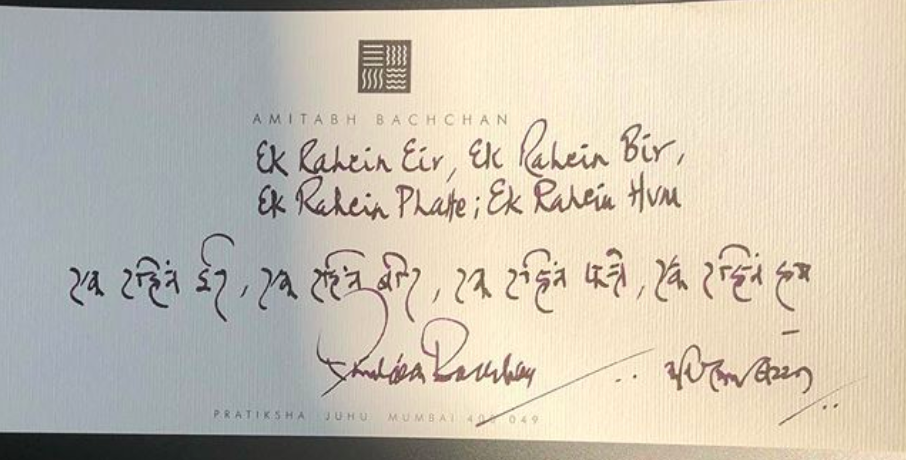 AMITABH BACHCHAN
Ek Rahein Eir, Ek Rahein Bir,
Ek Rahein Phatte; Ek Rahein Hum
एक रहिन ईर, एक रहिन बीर, एक रहिन फत्ते, एक रहिन हम
Amitabh Bachchan अमिताभ बच्चन
PRATIKSHA JUHU MUMBAI 400 049